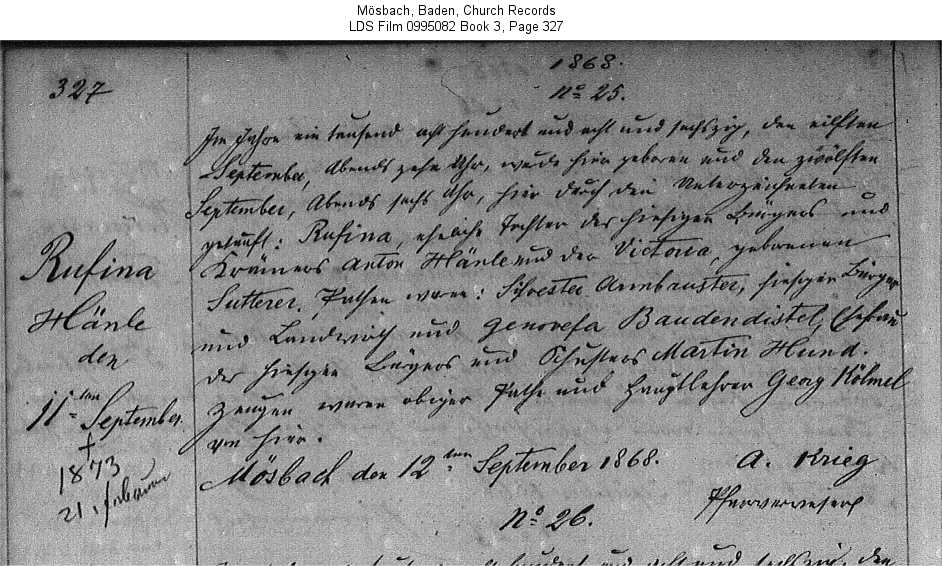 Mösbach, Baden, Church Records
LDS Film 0995082 Book 3, Page 327
327
1868.
No 25.
Im Jahre ein tausend acht hundert und acht und sechszig, den eilften
September, Abends zehn Uhr, wurde hier geboren und den zwölften
September, Abends sechs Uhr, hier durch den Unterzeichneten
getauft: Rufina, eheliche Tochter des hiesigen Bürgers und
Krämers Anton Hänle und der Victoria, geborenen
Sutterer. Pathen waren: Silvester Armbruster, hiesiger Bürger
und Landwirth und Genovefa Baudendistel, Ehefrau
des hiesigen Bürgers und Schusters Martin Hund.
Zeugen waren obiger Pathe und Hauptlehrer Georg Kölmel
von hier.
Mösbach den 12ten September 1868. A. Krieg
Pfarrverweser
Rufina
Hänle
den
11ten September.
†
1873
21.
No 26.
hundert und acht und sechszig, den